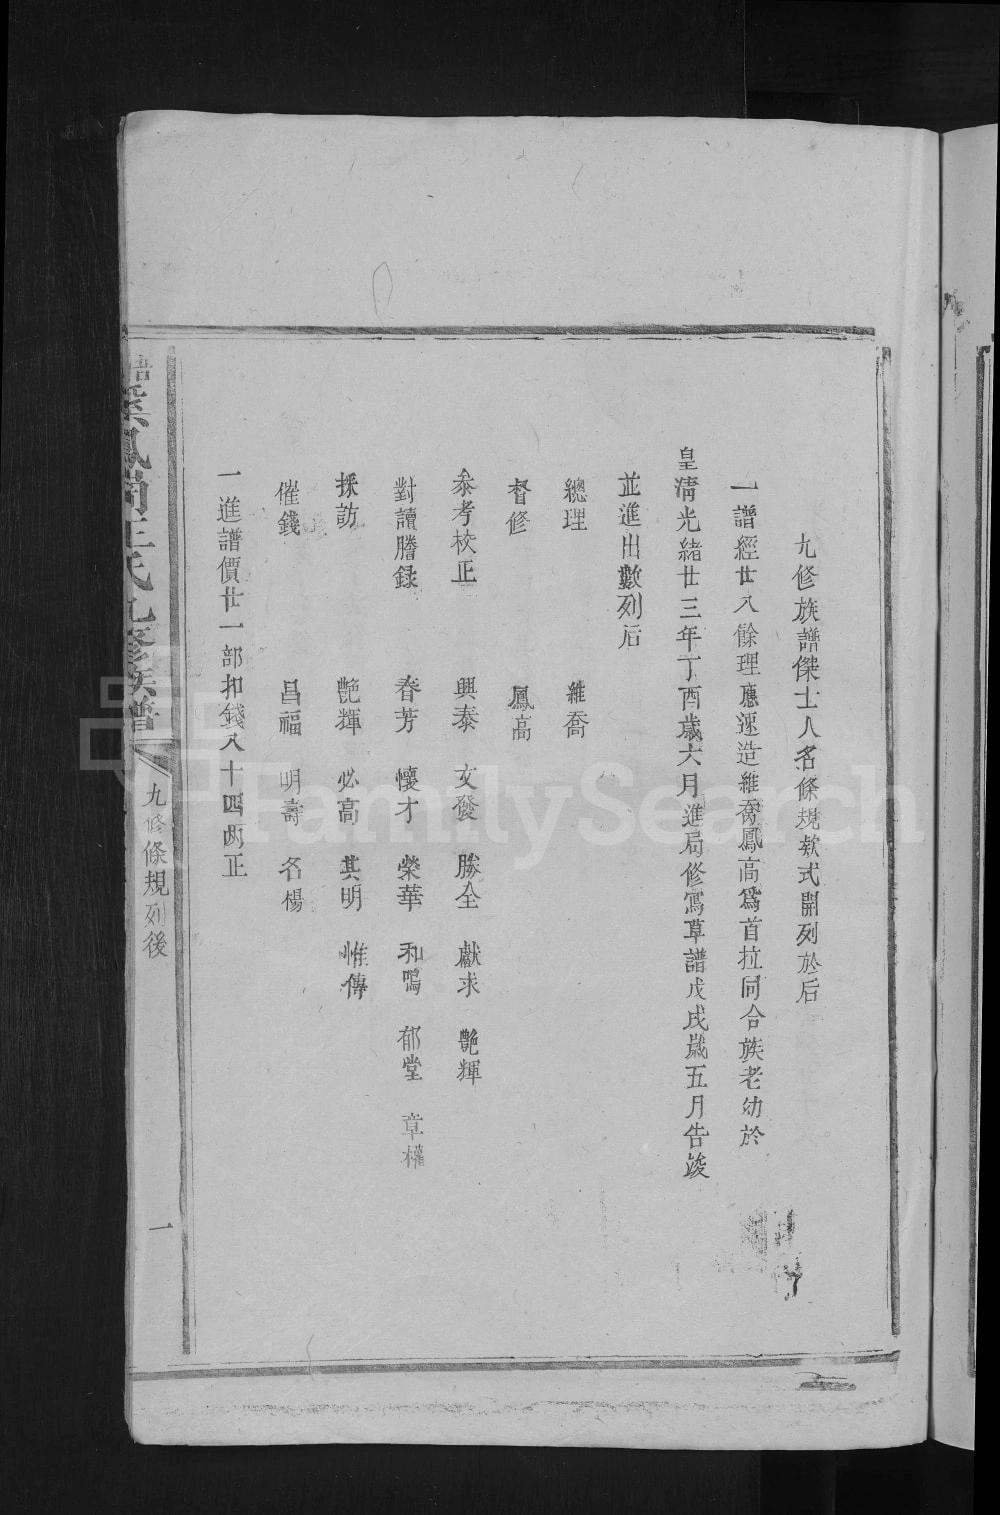 九修族譜傑士人名條規欵式開列於后
一譜經廿八餘理應速造維喬鳳高爲首拉同合族老幼於
皇清光緒廿三年丁酉歲六月進局修寫草譜戊戌歲五月告竣
並進出數列后
總理 維喬
督修 鳳高
叅考校正 興泰 文發 勝全 獻求 艷輝
對讀謄録 春芳 懷才 榮華 和鳴 郁堂 章權
採訪 艷輝 必高 其明 惟傳
催錢 昌福 明壽 名楊
一進譜價廿一部扣錢八十四両正
鳳岡王氏九修族譜
九修條規列後
一
FamilySearch